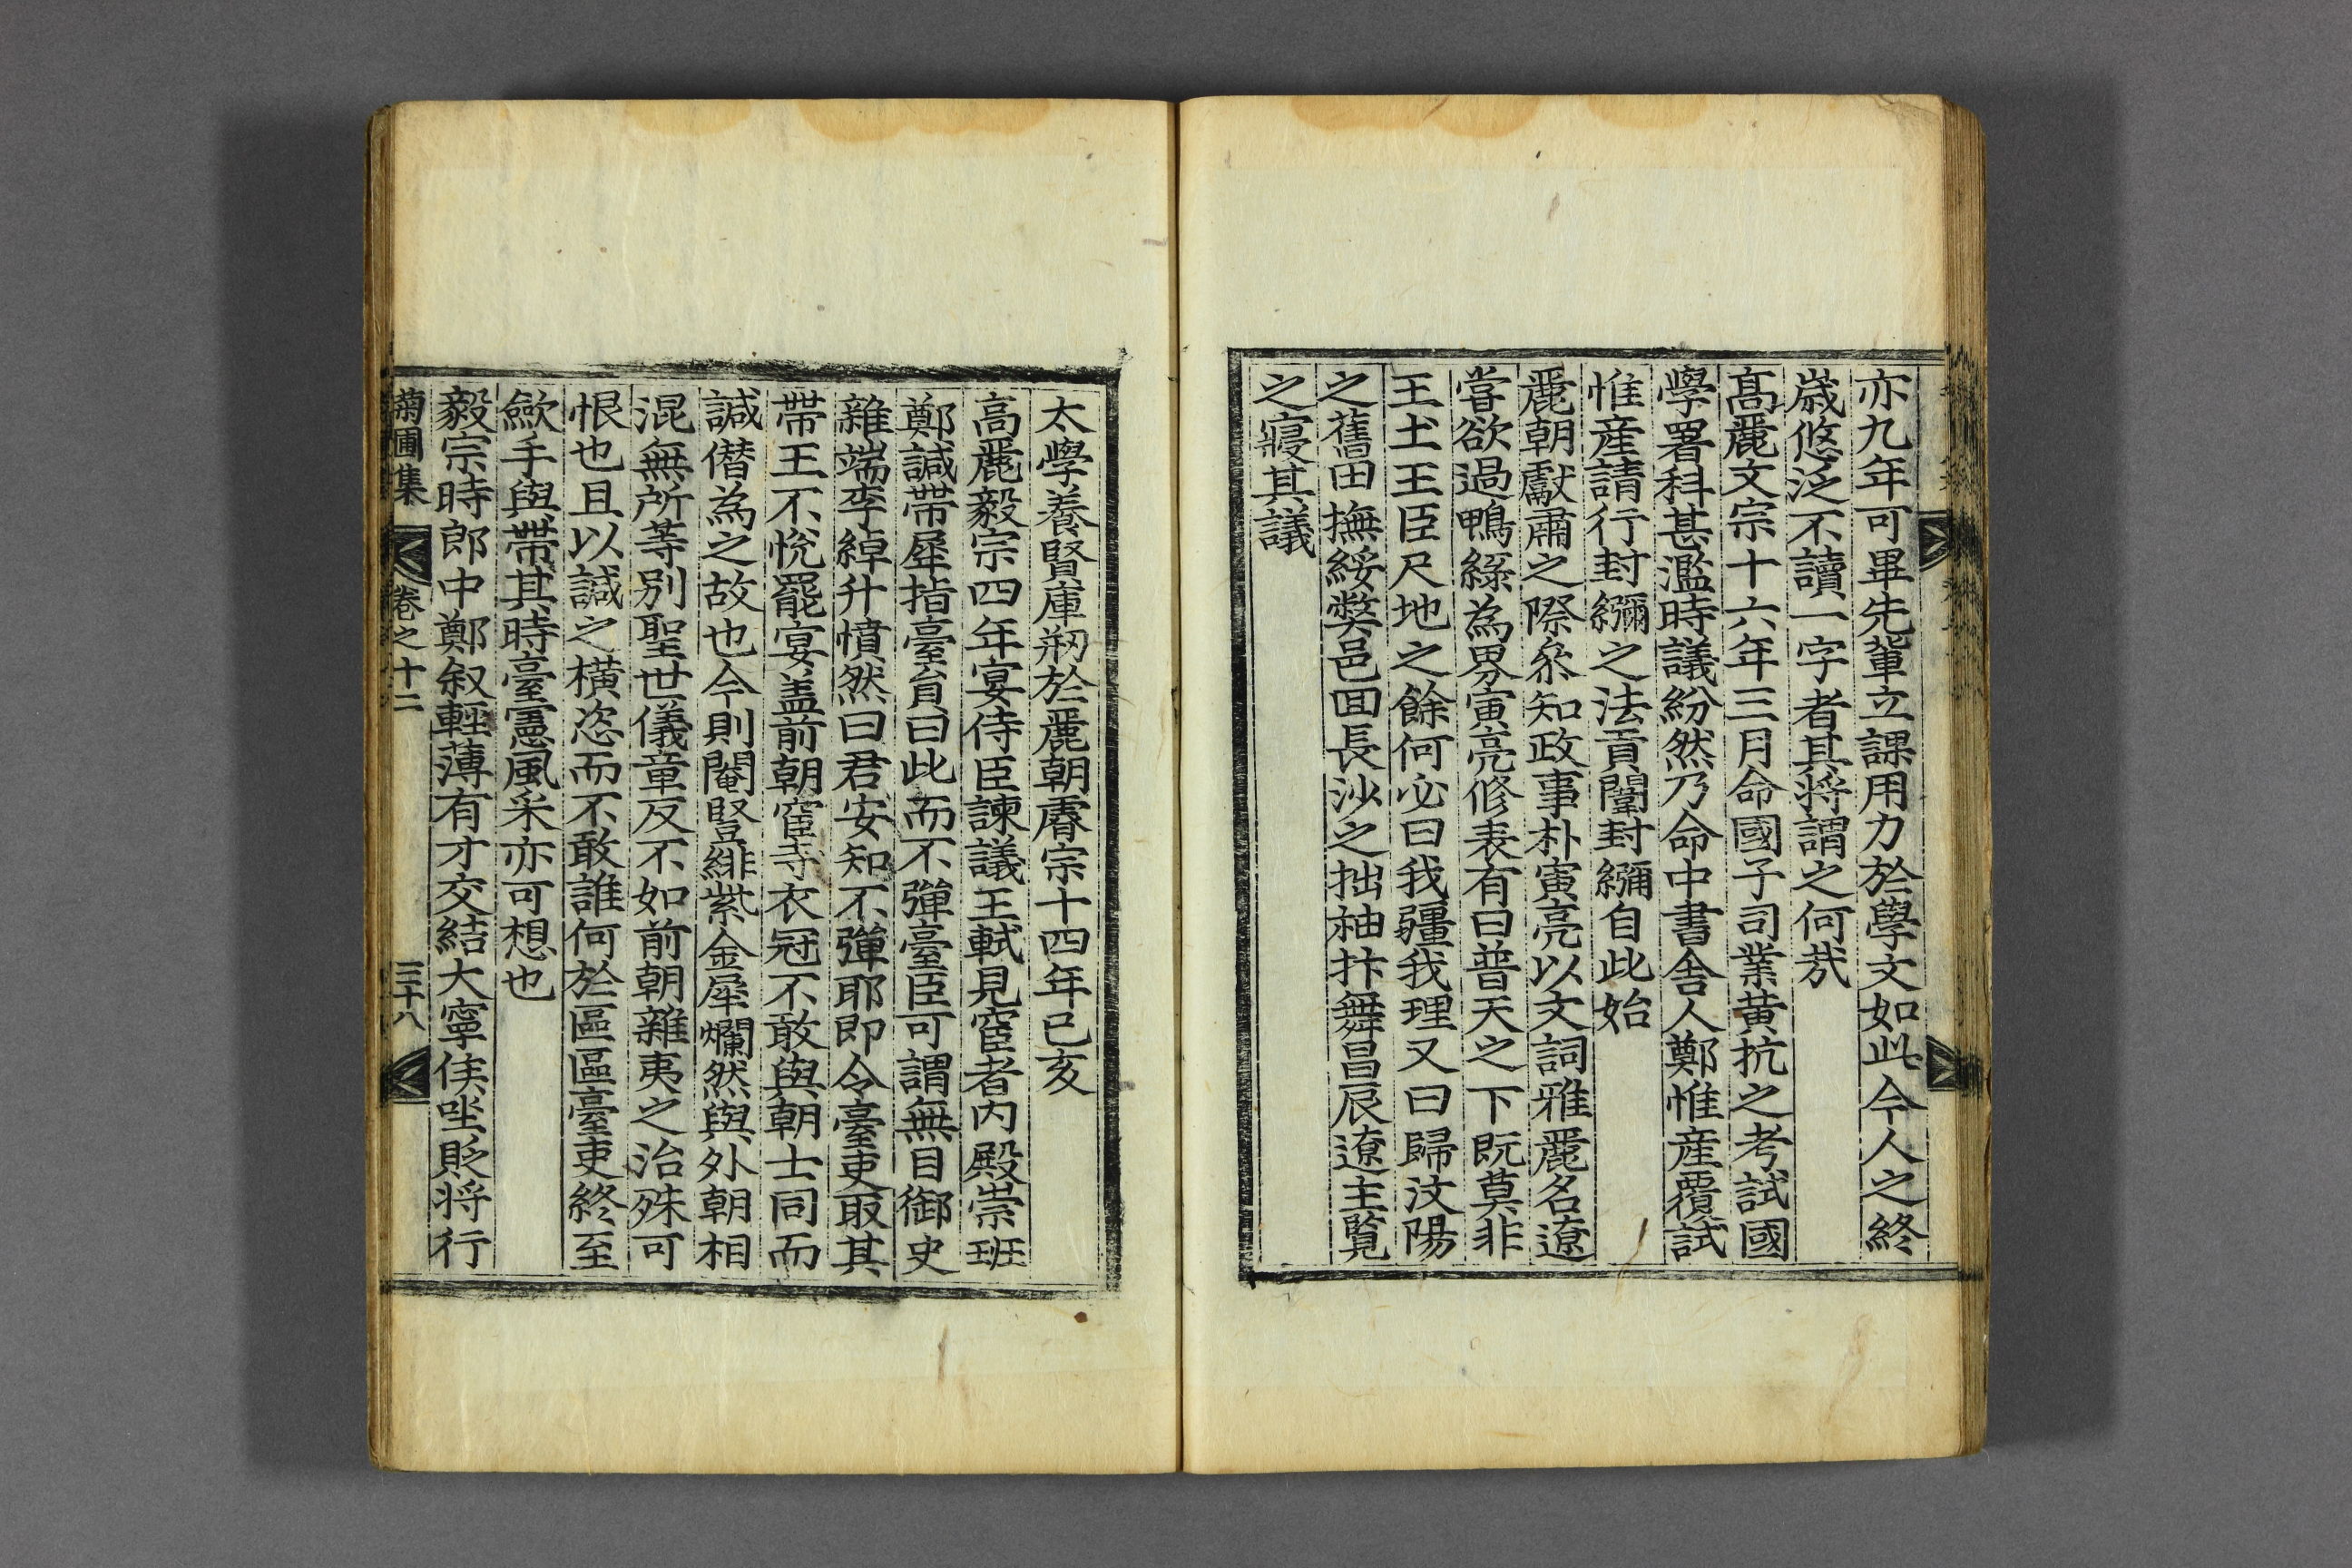 亦九年可畢先輩立課用力於學文如此今人之終
歲悠泛不讀一字者其将謂之何㢤
髙麗文宗十六年三月命國子司業黃抗之考試國
學署科甚濫時議紛然乃命中書舍人鄭惟産覆試
惟産請行封彌之法貢闈封彌自此始
麗朝獻肅之際叅知政事朴寅亮以文詞雅麗名遼
甞欲過鴨綠為界寅亮修表有曰普天之下旣莫非
王土王臣尺地之餘何必曰我疆我理又曰歸汶陽
之舊田撫綏弊邑囬長沙之拙袖抃舞昌辰遼主覧
之寢其議
太學養賢庫刱於麗朝睿宗十四年已亥
高麗毅宗四年宴侍臣諫議王軾見宦者内殿崇班
鄭諴帶犀指臺貟曰此而不彈臺臣可謂無目御史
雜端李綽升憤然曰君安知不彈耶即令臺吏取其
帶王不恱罷宴盖前朝宦寺衣冠不敢與朝士同而
諴僭為之故也今則閹竪緋紫金犀爛然與外朝相
混無所等别聖世儀章反不如前朝雜夷之治殊可
恨也且以諴之橫恣而不敢誰何於區區臺吏終至
歛手與帶其時臺憲風采亦可想也
毅宗時郎中鄭叙輕薄有才交結大寧侯坐貶将行
菊圃集 卷之十二 三十八